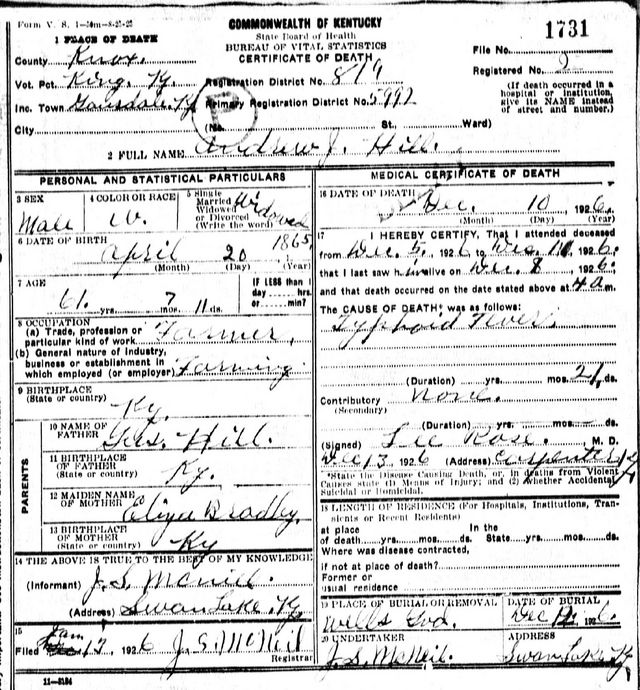 Form V. S. 1-50m-8-25-25
COMMONWEALTH OF KENTUCKY
State Board of Health
BUREAU OF VITAL STATISTICS
CERTIFICATE OF DEATH
1731
1 PLACE OF DEATH
County Knox.
File No.
Vot. Pct. King, Ky. Registration District No. 819
Registered No. 2
Inc. Town Ky Primary Registration District No. 5992
(If death occurred in a hospital or institution, give its NAME instead of street and number.)
City (No. St. Ward)
2 FULL NAME Andrew J. Hill.
PERSONAL AND STATISTICAL PARTICULARS
3 SEX Male
4 COLOR OR RACE W.
5 Single Married Widowed or Divorced (Write the word) Widowed
6 DATE OF BIRTH April 20 1865
(Month) (Day) 1
7 AGE 61. yrs. 7 mos. 11 ds.
IF LESS than 1 day hrs. or min?
8 OCCUPATION
(a) Trade, profession or particular kind of work Farmer,
(b) General nature of industry, business or establishment in which employed (or employer) Farming
9 BIRTHPLACE
(State or country) Ky.
PARENTS
10 NAME OF FATHER Hill.
11 BIRTHPLACE OF FATHER
(State or country) Ky.
12 MAIDEN NAME OF MOTHER Eliza Bradley.
13 BIRTHPLACE OF MOTHER
(State or country) Ky
14 THE ABOVE IS TRUE TO THE BEST OF MY KNOWLEDGE
(Informant) J. S. McNeil.
(Address) Swan Lake, Ky.
15
Filed Jan 12, 1926 J. S. McNeil
Registrar
11-3184
MEDICAL CERTIFICATE OF DEATH
16 DATE OF DEATH Dec. 10 1926.
(Month) (Day) (Year)
17 I HEREBY CERTIFY, That I attended deceased
from Dec. 5, 1926 to Dec. 10 1926.
that I last saw him alive on Dec. 8 1926.
and that death occurred on the date stated above at 4 a m.
The CAUSE OF DEATH* was as follows:
Typhoid Fever.
(Duration) yrs. mos. 21, ds.
Contributory None.
(Secondary)
(Duration) yrs. mos. ds.
(Signed) Lee Rose. M. D.
Dec 13, 1926 (Address)
*State the Disease Causing Death, or, in deaths from Violent Causes state (1) Means of Injury; and (2) whether Accidental, Suicidal or Homicidal.
18 LENGTH OF RESIDENCE (For Hospitals, Institutions, Transients or Recent Residents)
at place of death yrs. mos. ds. In the State yrs. mos. ds.
Where was disease contracted,
if not at place of death?
Former or usual residence
19 PLACE OF BURIAL OR REMOVAL DATE OF BURIAL
Wells Gvd. Dec 12, 1926.
20 UNDERTAKER ADDRESS
J. S. McNeil. Swan Lake, Ky